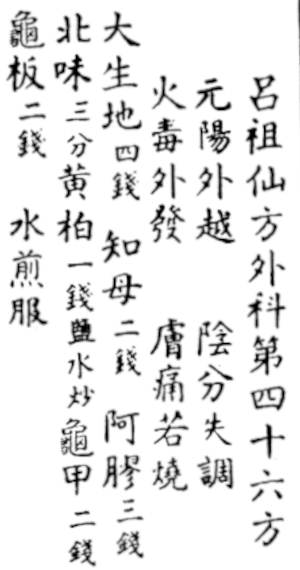 呂祖仙方外科第四十六方
元陽外越　陰分失調
火毒外發　膚痛若燒
大生地四錢　知母二錢　阿膠三錢
北味三分黄柏一錢鹽水炒龜甲二錢
龜板二錢　水煎服